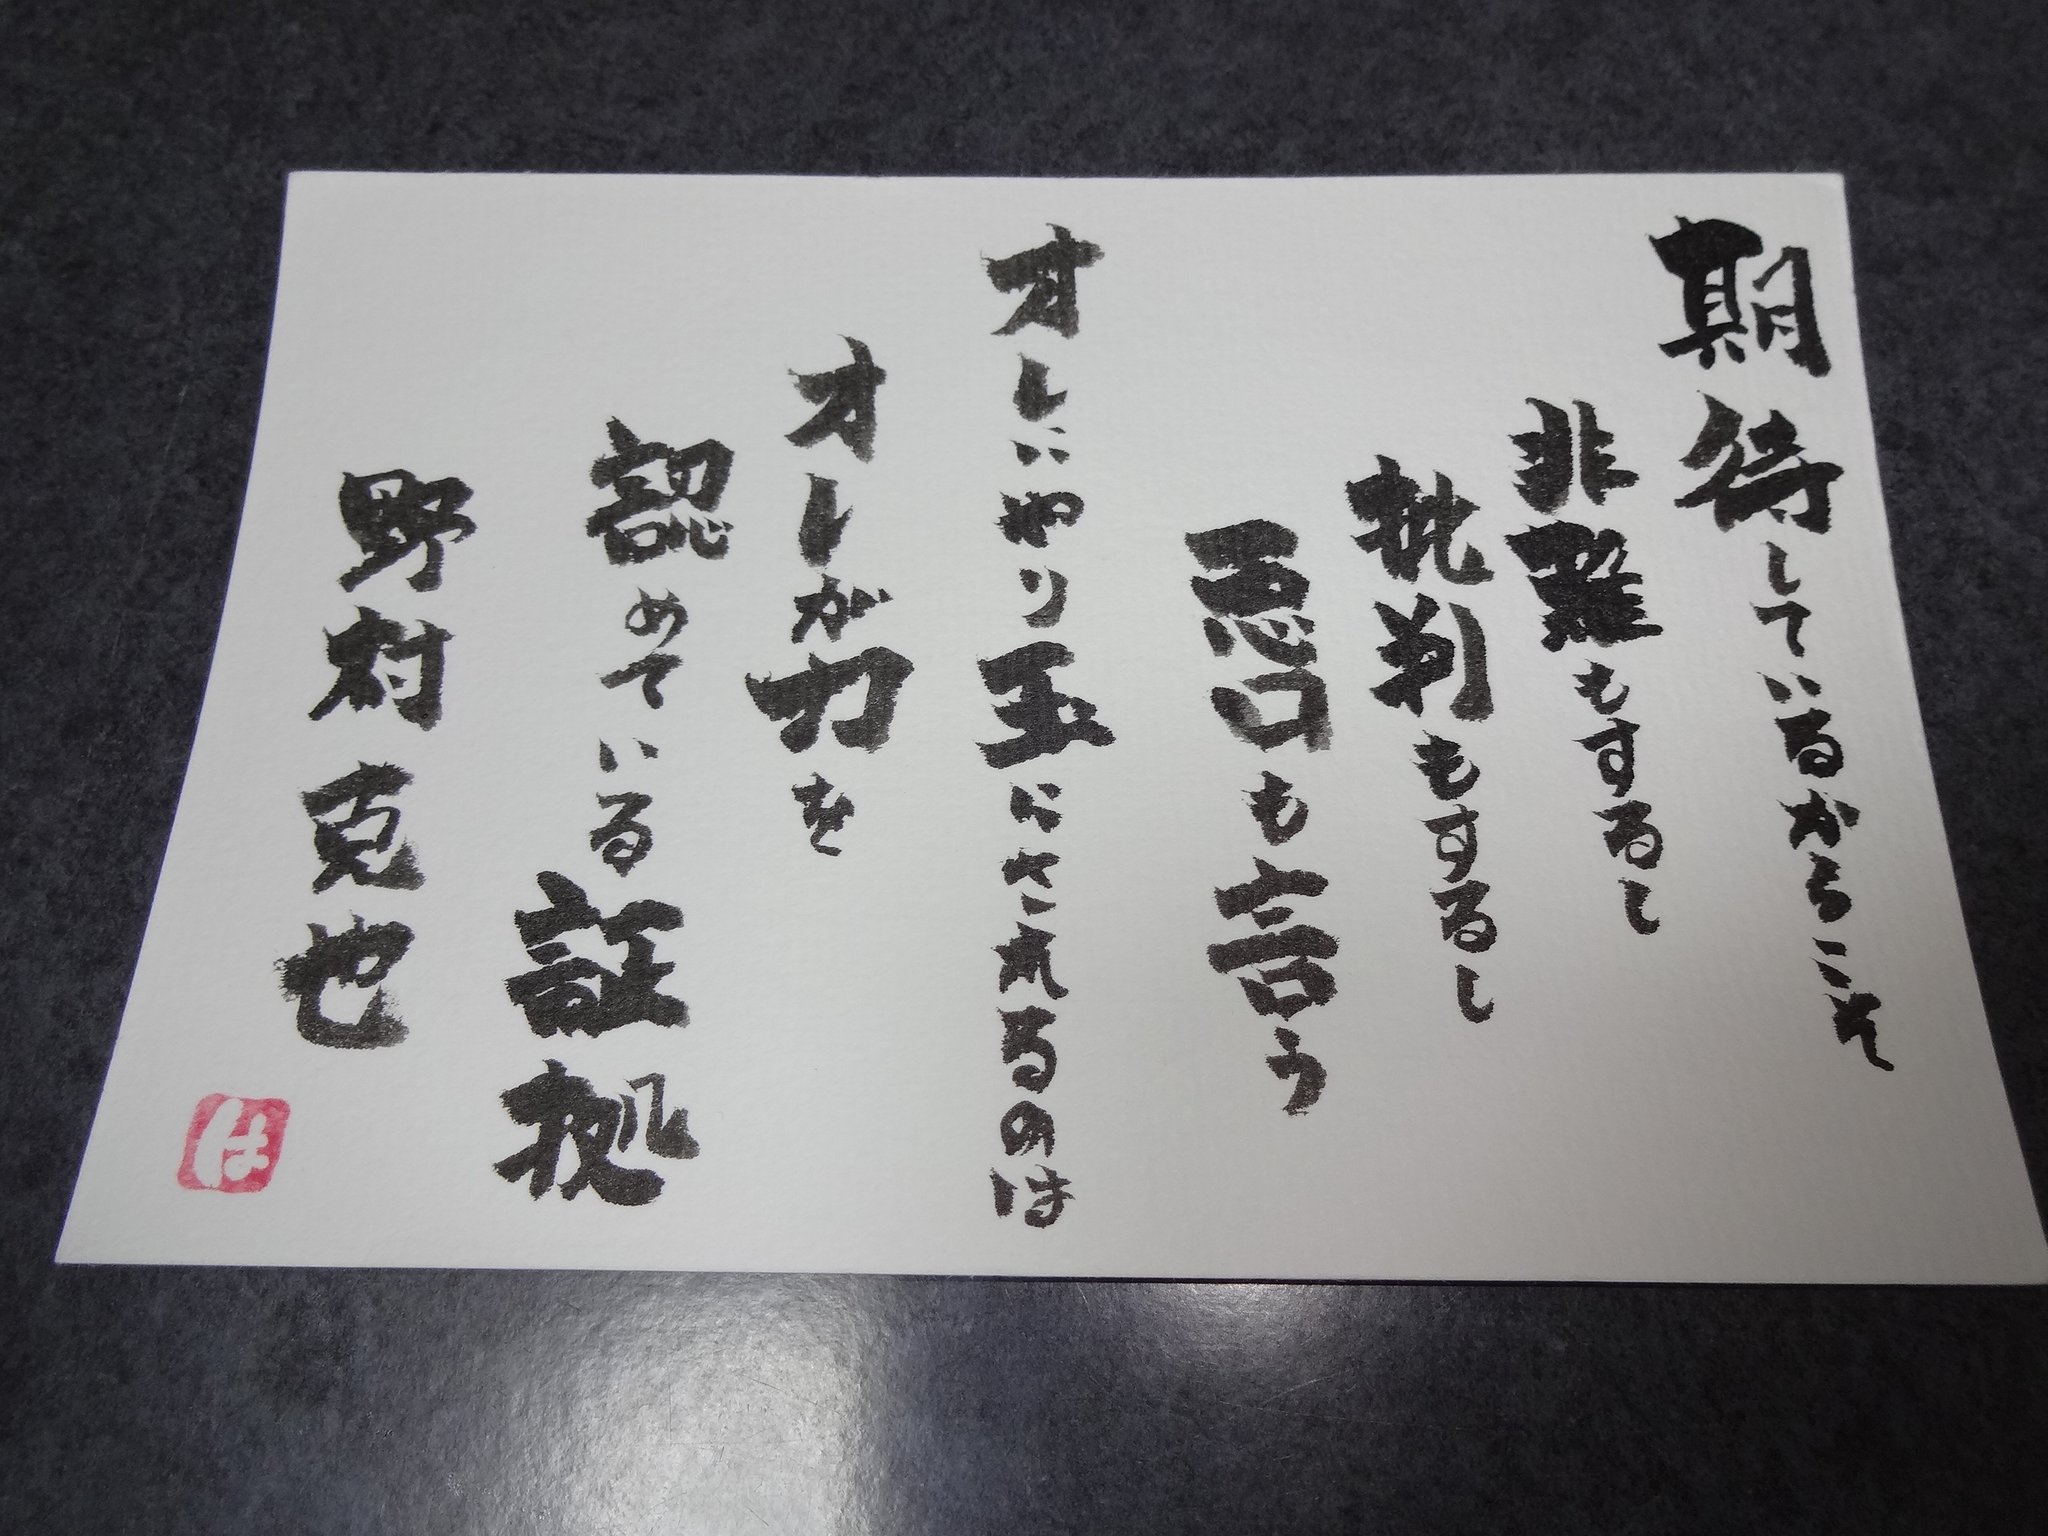 期待しているからこそ
非難もするし
批判もするし
悪口も言う
オレにやり玉にされるのは
オレが力を
認めている証拠
野村克也
は